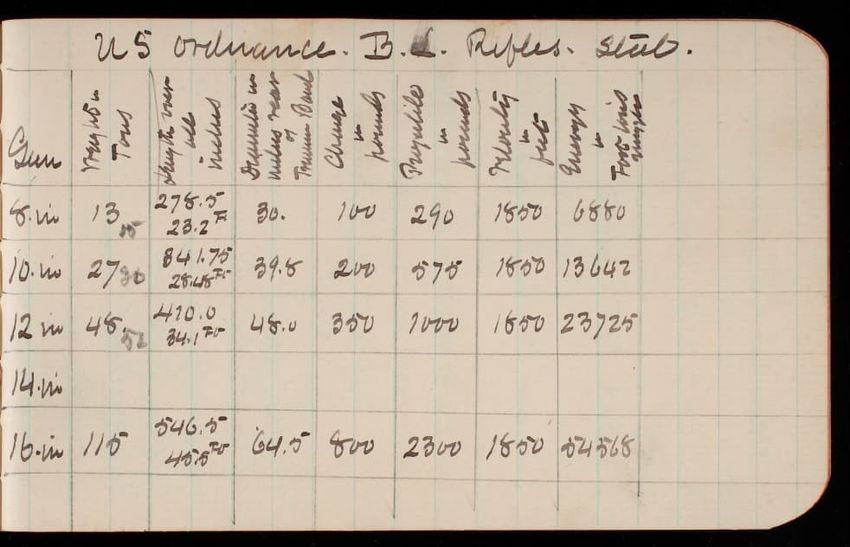 US Ordnance. B.L. Rifles. Steel.
Gun Weight in Tons Length over all inches Diameter in inches rear of Trunn Band Charge in pounds Projectile in pounds Velocity in feet Energy in Foot tons
8.in 13 278.5 30. 100 290 1850 6880
23.2 Ft
10.in 27 30 341.75 39.8 200 575 1850 13642
28.48 Ft
12 in 48. 52 410.0 48.0 350 1000 1850 23725
34.1 Ft
14.in
16.in 115 546.5 64.5 800 2300 1850 54568
45.5 Ft